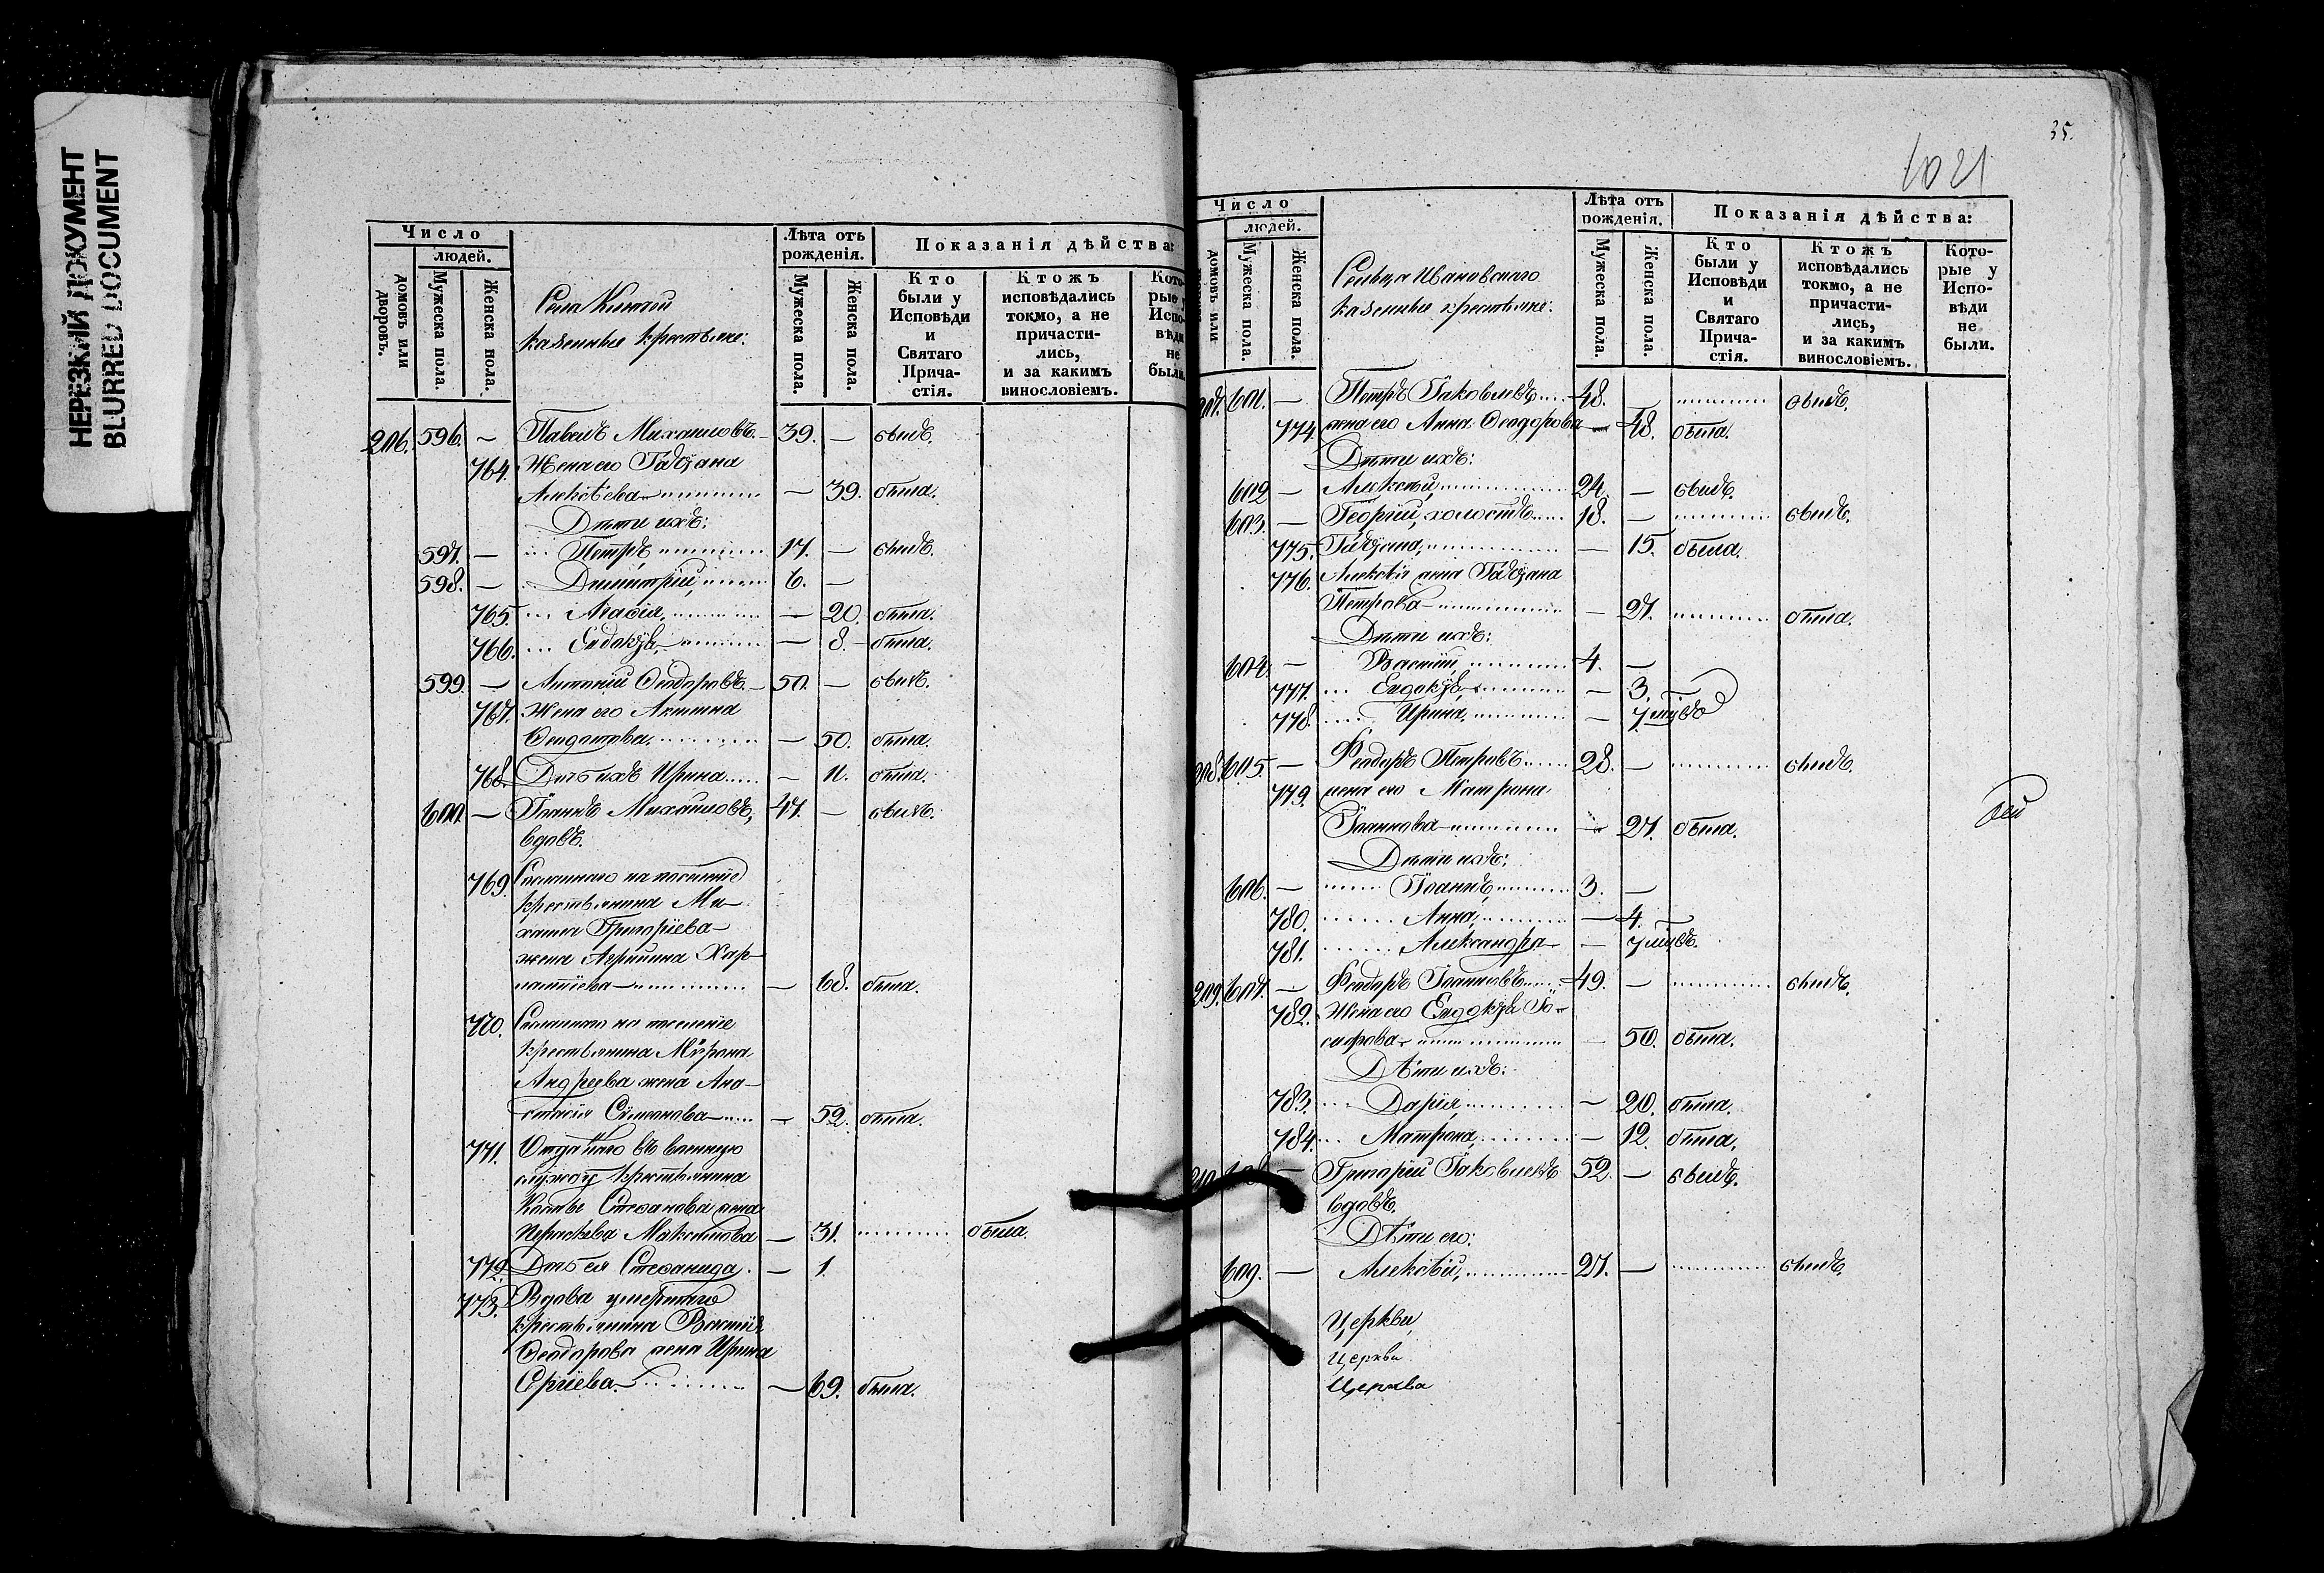 НЕРЕЗКИЙ ДОКУМЕНТ
BLURRED DOCUMENT
Число
людей.
домовъ или дворовъ.
Мужеска пола.
Женска пола.
Села
казенные крестьяне:
Лѣта отъ рожденія.
Мужеска пола.
Женска пола.
Показанія дѣйства:
Кто были у Исповѣди и Святаго Причастія.
Ктожъ исповѣдались токмо, а не причастились, и за какимъ винословіемъ.
206. 596. – Павелъ Михаиловъ – 39. – былъ.
764. Жена его Татіана
Алексѣева – 39. была.
Дѣти ихъ:
597. – Петръ, 17. – былъ.
598. – Димитрій, 6. –
765. – 20. была.
766. Евдокія, – 8. – была.
599. – Антоній Ѳеодоровъ – 50. – былъ.
767. Жена его Акилина
– 50. была.
768. Дочь ихъ Ирина – 11. была.
600. – Іоаннъ Михаиловъ, 47. – былъ.
вдовъ.
769. Сосланнаго на поселеніе
крестьянина Ми–
хаила Григоріева –
жена Агрипина Хар–
лампіева – – 68. была.
770. Сосланнаго на поселеніе
крестьянина Мѵрона
Андреева жена Ана–
стасія Сѵмеонова – – 52. была.
771. Отданнаго въ военную
службу крестьянина
Стефанова жена
Параскева Максимова – 31. была.
772. Дочь ея Стефанида. – 1.
773. Вдова умершаго
крестьянина Василія
Ѳеодорова жена Ирина
Сергіева. – 69. была.
35.
1021
Число
людей.
домовъ или
Мужеска пола.
Женска пола.
Сельца Ивановскаго
казенные крестьяне:
Лѣта отъ рожденія.
Мужеска пола.
Женска пола.
Показанія дѣйства:
Кто были у Исповѣди и Святаго Причастія.
Ктожъ исповѣдались токмо, а не причастились, и за какимъ винословіемъ.
Которые у Исповѣди не были.
207. 601. – Петръ Іаковлевъ 48. – былъ.
774. жена его Анна Ѳеодорова – 48. была.
Дѣти ихъ:
602 – Алексѣй, 24. – былъ.
603. – Георгій, холостъ 18. – былъ.
775. Татіана, – 15. была.
776. Алексѣя жена Татіана
Петрова – – 27. была.
Дѣти ихъ:
604. – Василій 4. –
777. Евдокія, – 3.
778. Ирина, – 7
208. 605. – Ѳеодоръ Петровъ 28. – былъ.
779. жена его Матрона
Іоаннова – – 27. была.
Дѣти ихъ:
606. – Іоаннъ, 3. –
780. Анна, – 4.
781. Александра – – 7
209. 607. – Ѳеодоръ Іоанновъ 49. – былъ.
782. Жена его Евдокія Іо–
сифова – – 50. была.
Дѣти ихъ:
783. Дарія, – 20. была.
784. Матрона, – 12. была.
210. 608. – Григорій Іаковлевъ 52. – былъ.
вдовъ.
Дѣти его:
609. – Алексѣй, 27. – былъ.
Церкви
Церкви
Церкви